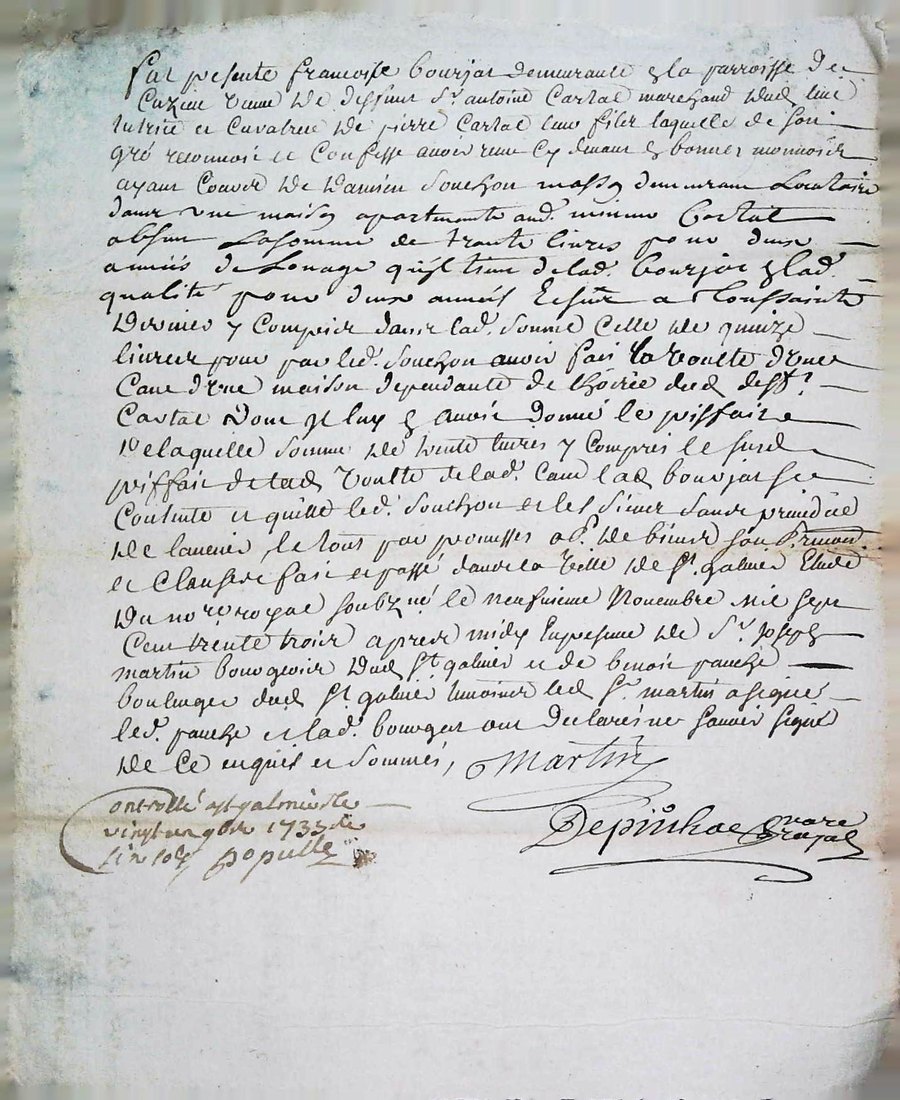 fut présente francoise bourjat demeurante en la parroisse de
Cuzieu veuve de deffunt Sr. antoine Cartal marchand dud. lieu
tutrice et Curatrice de pierre Cartal leur filz laquelle de son
gré reconnoit et Confesse avoir reçu Cy devant en bonnes monnoies
ayant Cours de Damien Souchon masson demeurant Locataire
dans une maison apartenante aud. mineur Cartal
absent La somme de trante livres pour deux
années de Louage qu'il tient de lad. bourjat en lad.
qualité pour deux années Echeües a Toussaints
dernier y Compris dans lad. somme Celle de quinze
livres pour par led. Souchon avoir fait la voulte d'une
Cave d'une maison dépendante de l'hoirie dud. defft.
Cartal dont il luy en avoit donné le prisfait
de laquelle somme de trente livres y Compris le susd.
prisfait de lad. voulte de lad. Cave lad. bourjat se
Contente et quitte led. Souchon et les siens sans préjudice
de lavenir, le tout par promesses obl. de biens
et Clauses fait et passé dans la ville de St. galmier Etude
du nore. royal soubzné. le neufvieme Novembre mil sept
Cent trente trois apres midy En presence de Sr. Joseph
martin bourgeois dud. St galmier et de benoit
boulanger dud. St. galmier temoins led. Sr. martin a signé
led. et lad. bourgat ont declaré ne scavoir signer
de Ce enquis et sommés,
Martin
Controllé a St galmier le
vingt un 9bre 1733 de
six sols
nore royal